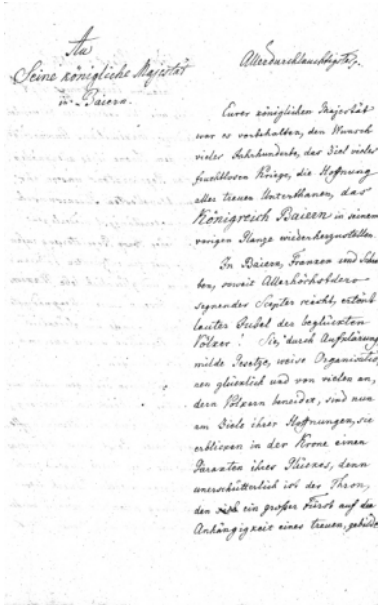 An
Seine königliche Majestät
in Baiern.
Allerdurchlauchtigster,
Eurer königlichen Majestät
war es vorbehalten, den Wunsch
vieler Jahrhunderte, das Ziel vieler
fruchtlosen Kriege, die Hoffnung
aller treuen Unterthanen, das
Königreich Baiern in seinem
vorigen Glanze wiederherzustellen.
In Baiern, Franken und Schwa
ben, soweit Allerhöchstdero
segnender Scepter reicht, ertönt
lauter Jubel der beglückten
Völker! Sie, durch Aufklärung,
milde Gesetze, weise Organisatio
nen glücklich und von vielen an,
dern Völkern beneidet, sind nun
am Ziele ihrer Hoffnungen, sie
erblicken in der Krone einen
Garanten ihres Glückes, denn
unerschütterlich ist der Thron,
den ein großer Fürst auf die
Anhängigkeit eines treuen, gebilde